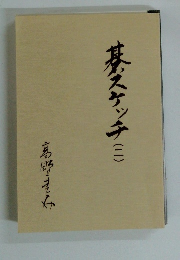 碁スケッチ(二)
高野圭介